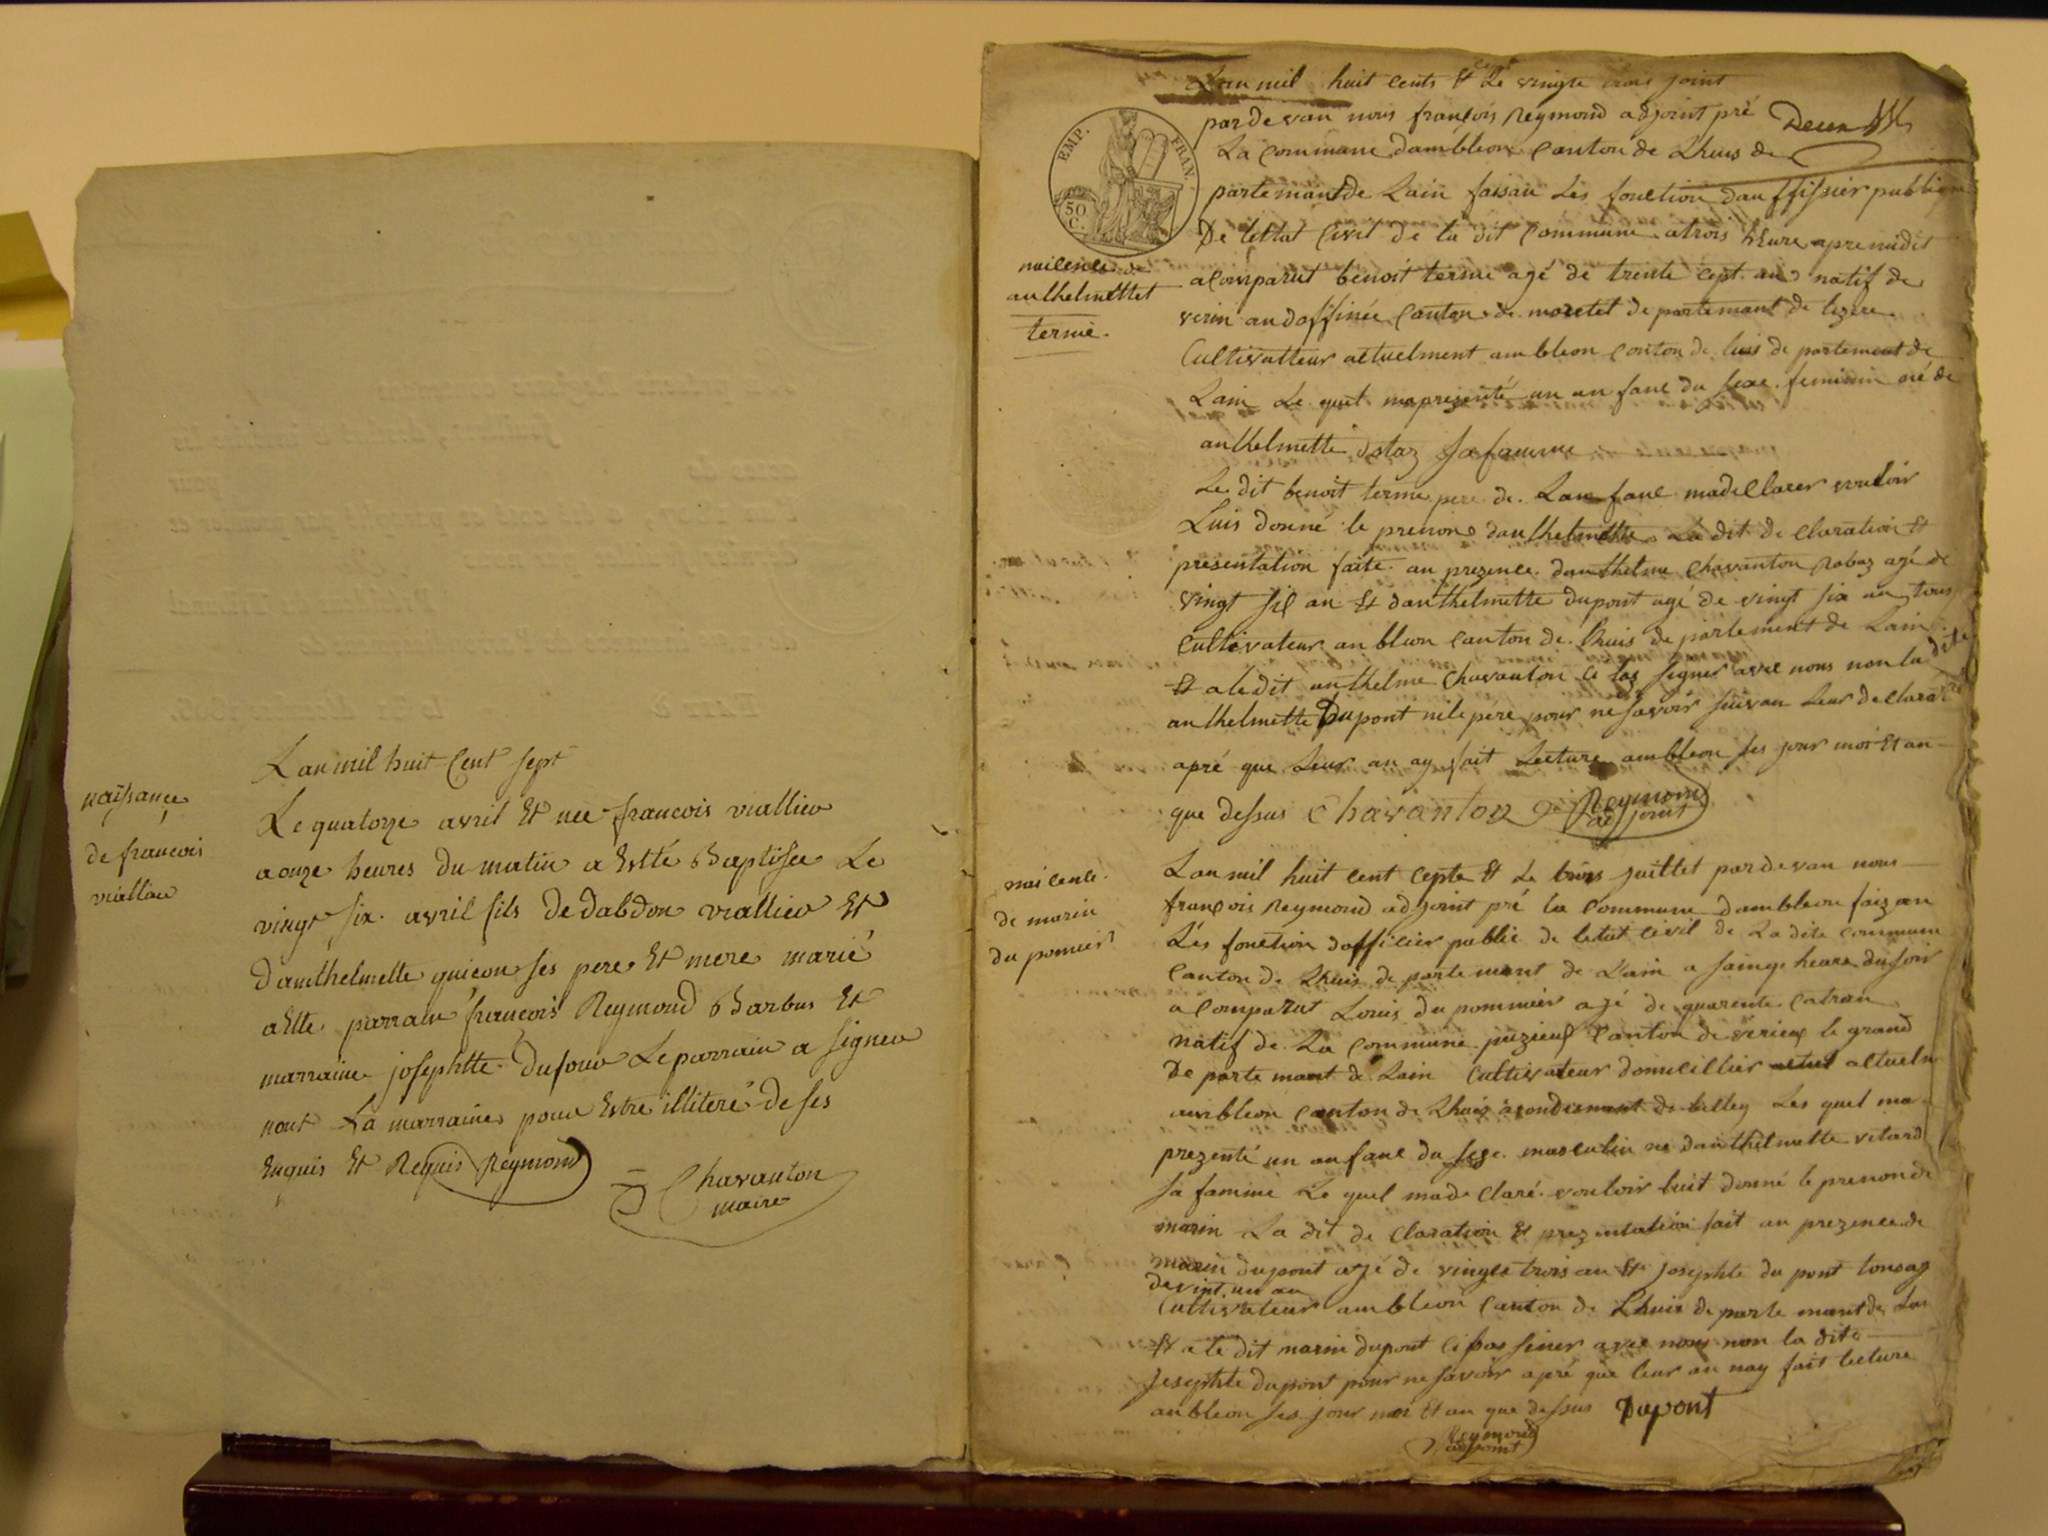 naissance
de francois
viallieu
Lan mil huit Cent sept
Le quatorze avril Et nee francois viallieu
a onze heures du matin a Estté Baptisee Le
vingt six avril fils De dabdon viallieu Et
Danthelmette guicon ses pere Et mere marié
aEtte parrain francois Reymond Barbus Et
marraine josephtte Dufour Le parrain a signeu
nont La marraine pour Estre illiteré de ses
Enquis Et Requis Reymond
Chavanton
maire
Lan mil huit cents Et Le vingte trois joint
par devan nous françois Reymond adjoint pré
La commune dambléon Canton de Lhuis de
partemant de Lain faisan Les fonction dauffissier publique
De lettat Civil de la dit Commune a trois heure apre midit
EMP. FRAN.
50 C.
naicence de
anthelmettet
terme
acomparut benoit terme agé de trente cept an natif de
verin audoffinée Canton de moretel de partemant de lizere
Cultivatteur actuelment ambleon Conton de luis de partement de
Lain Le quel ma presenté un an fant du sexe feminin né de
anthelmette dotaz sa famme
Le dit benoit terme pere de Lan fant ma decllarer vouloir
Luis donné le prenon danthelmette La dit de claration Et
presentation faite an prezence danthelme Chavanton Robaz agé de
vingt six an Et danthelmette dupont agé de vingt six an tous
Cultivateur anbleon canton de Lhuis de partement de Lain
Et a le dit anthelme Chavanton signer avec nous non la dite
anthelmette Dupont ni le pére pour ne savoir suivan Leur de clarat
apré que Leur an ay fait Lecture ambleon ses jour moi Et an
que dessus Chavanton Reymond
adjoint
naicence
de marin
du pomier
Lan mil huit cent cepte Et Le trois juillet par devan nous
françois Reymond adjoint pré la Commune dambleon faizan
Lés fonction dofficier public de letat civil de La dite commune
Canton de Lhuis de parte mant de Lain a sainq heure du soir
a Comparut Louis du pommier agé de quarente catran
natif de La Commune puzieuf Canton de virieux le grand
De parte mant de Lain Cultivateur domicillier actuelm
ambleon Canton de Lhuis arondismant de belley Lés quel ma
prezenté un an fant du sexe masculin ne danthelmette vitard
sa famme Le quel ma de claré vouloir luit donné le prenon de
marin La dit de claration Et prezentation fait an prezence de
marin dupont agé de vingte trois an Et josephte du pont
de vint un an
Cultivateur ambleon Canton de Lhuis de parte mant de Lain
Et a le dit marin dupont siner avec nous non la dite
Josephte dupont pour ne savoir apré que leur an nay fait lecture
anbleon ses jour moi Et an que dessus Dupont
Reymond
adjoint